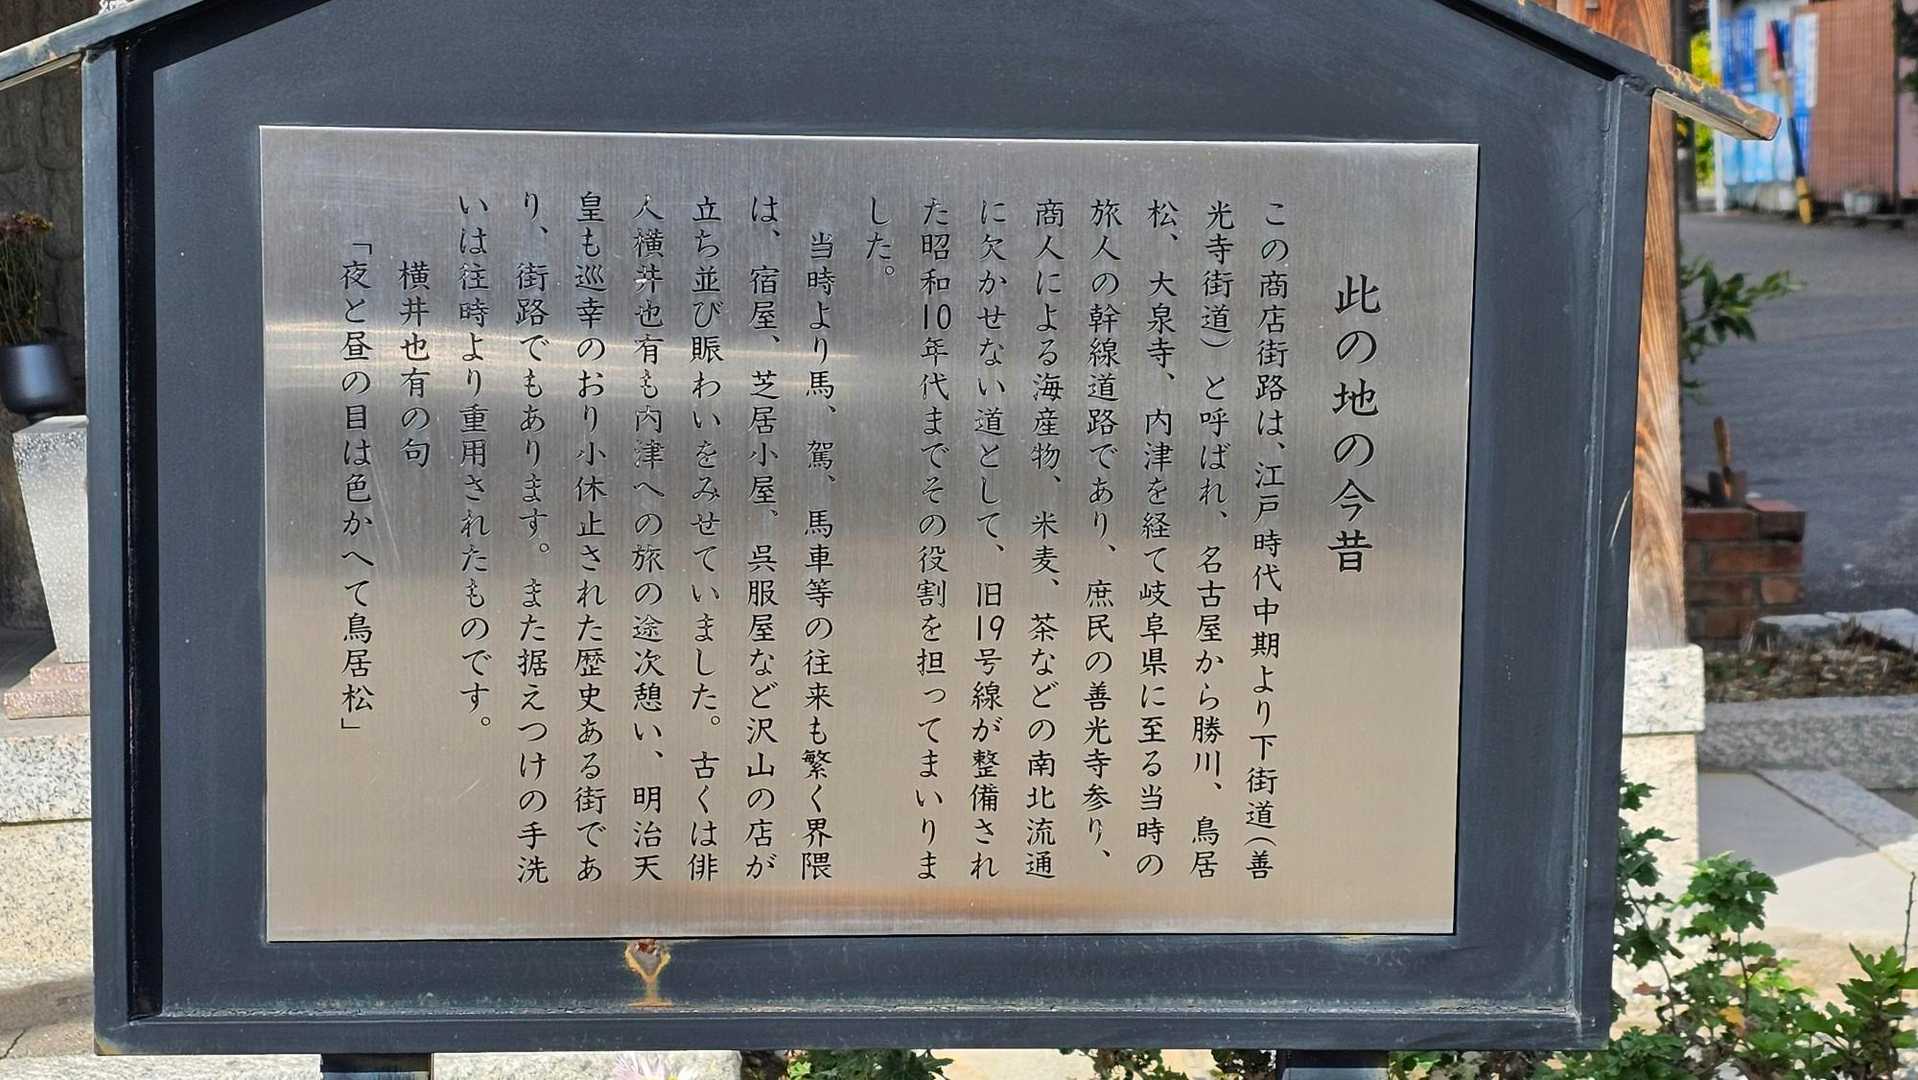 此の地の今昔
この商店街路は、江戸時代中期より下街道(善
光寺街道)と呼ばれ、名古屋から勝川、鳥居
松、大泉寺、内津を経て岐阜県に至る当時の
旅人の幹線道路であり、庶民の善光寺参り、
商人による海産物、米麦、茶などの南北流通
に欠かせない道として、旧19号線が整備され
た昭和10年代までその役割を担ってまいりま
した。
当時より馬、駕、馬車等の往来も繁く界隈
は、宿屋、芝居小屋、呉服屋など沢山の店が
立ち並び賑わいをみせていました。古くは俳
人横井也有も内津への旅の途次憩い、明治天
皇も巡幸のおり小休止された歴史ある街であ
り、街路でもあります。また据えつけの手洗
いは往時より重用されたものです。
横井也有の句
「夜と昼の目は色かへて鳥居松」